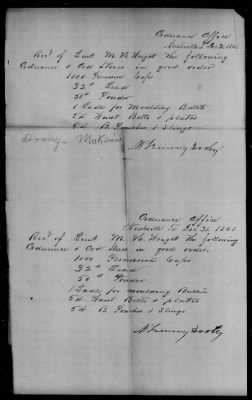 Ordnance Office
Nashville Dec 21 1861
Recd of Lieut M. H. Wright the following
Ordnance & Ord Stores in good order
1000 Percussion Caps
32 " Lead
50 " Powder
1 Ladle for Moulding Bullets
54 Waist Belts & plates
54 B. Pouches & Slings
Ordnance Office
Nashville Te Dec 21, 1861
Recd of Lieut M. H. Wright the following
Ordnance & Ord Stores in good order.
1000 Percussion Caps
32 " Lead
50 " Powder
1 Ladle for moulding Bullets
54 Waist Belts & plates
54 B Pouches & Slings